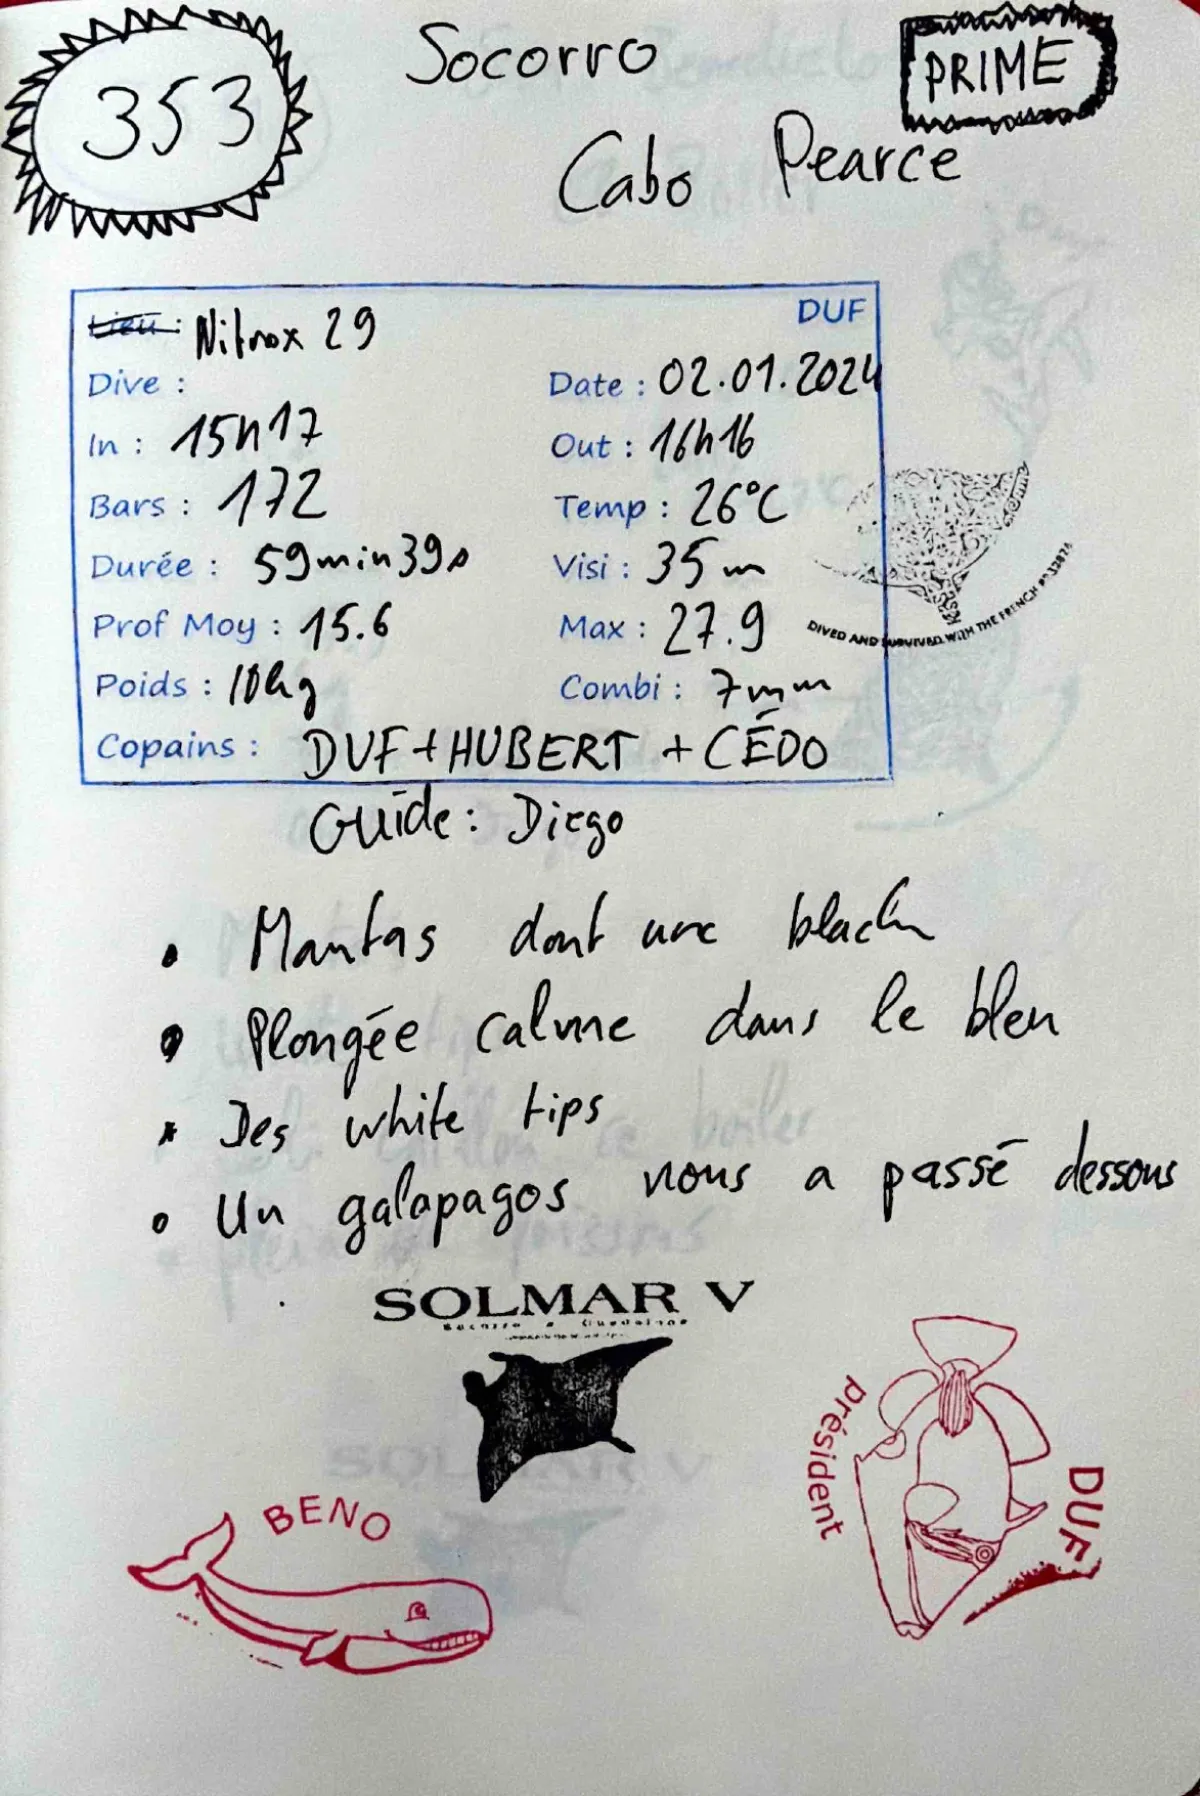 353
Socorro
PRIME
Cabo Pearce
Lieu : Nitrox 29
DUF
Dive :
Date : 02.01.2024
In : 15h17
Out : 16h16
Bars : 172
Temp : 26°C
Durée : 59min39s
Visi : 35 m
Prof Moy : 15.6
Max : 27.9
DIVED AND SURVIVED WITH THE FRENCH
Poids : 10kg
Combi : 7mm
Copains : DUF + HUBERT + CÉDO
Guide : Diego
• Mantas dont une black
• Plongée calme dans le bleu
• Des white tips
• Un galapagos nous a passé dessous
SOLMAR V
Socorro • Guadalupe
BENO
président
DUF